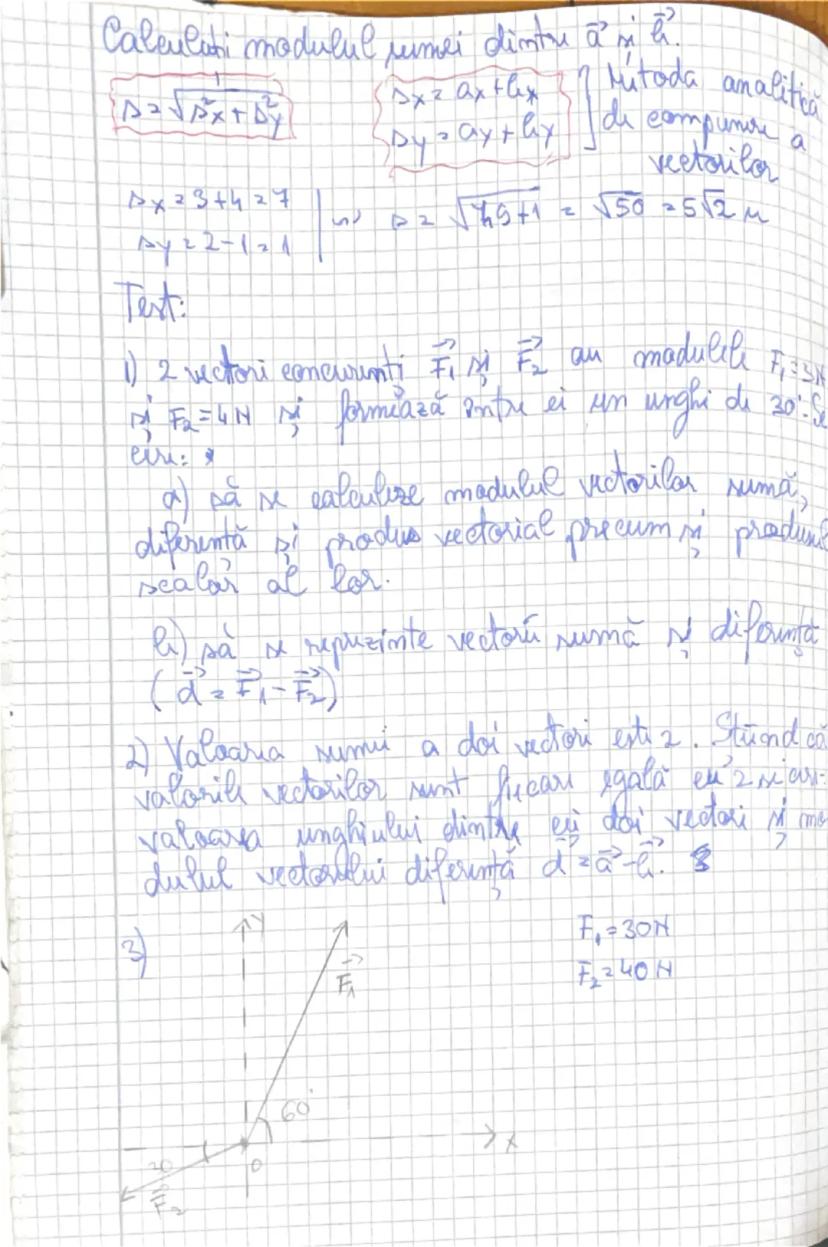 Calculați modulul sumei dintre a⃗ și b⃗.
s=√(s²x + s²y) sx = ax + bx Metoda analitică
sy = ay + by de compunere a
vectorilor
sx = 3+4 = 7
sy = 2-1 = 1 => s = √49+1 = √50 = 5√2 u
Test:
1) 2 vectori concurenți F⃗₁ și F⃗₂ au modulele F₁=3N
și F₂=4N și formează între ei un unghi de 30°. Se
cere:
a) să se calculeze modulul vectorilor sumă,
diferență și produs vectorial precum și produsul
scalar al lor.
b) să se reprezinte vectorii sumă și diferență
(d⃗ = F⃗₁ - F⃗₂)
2) Valoarea sumei a doi vectori este 2. Știind că
valorile vectorilor sunt fiecare egală cu 2 se cere
valoarea unghiului dintre cei doi vectori și mo
dulul vectorului diferență d⃗ = a⃗ - b⃗.
3) y F₁=30N
F⃗₁ F₂=40N
60°
x
O
F⃗₂